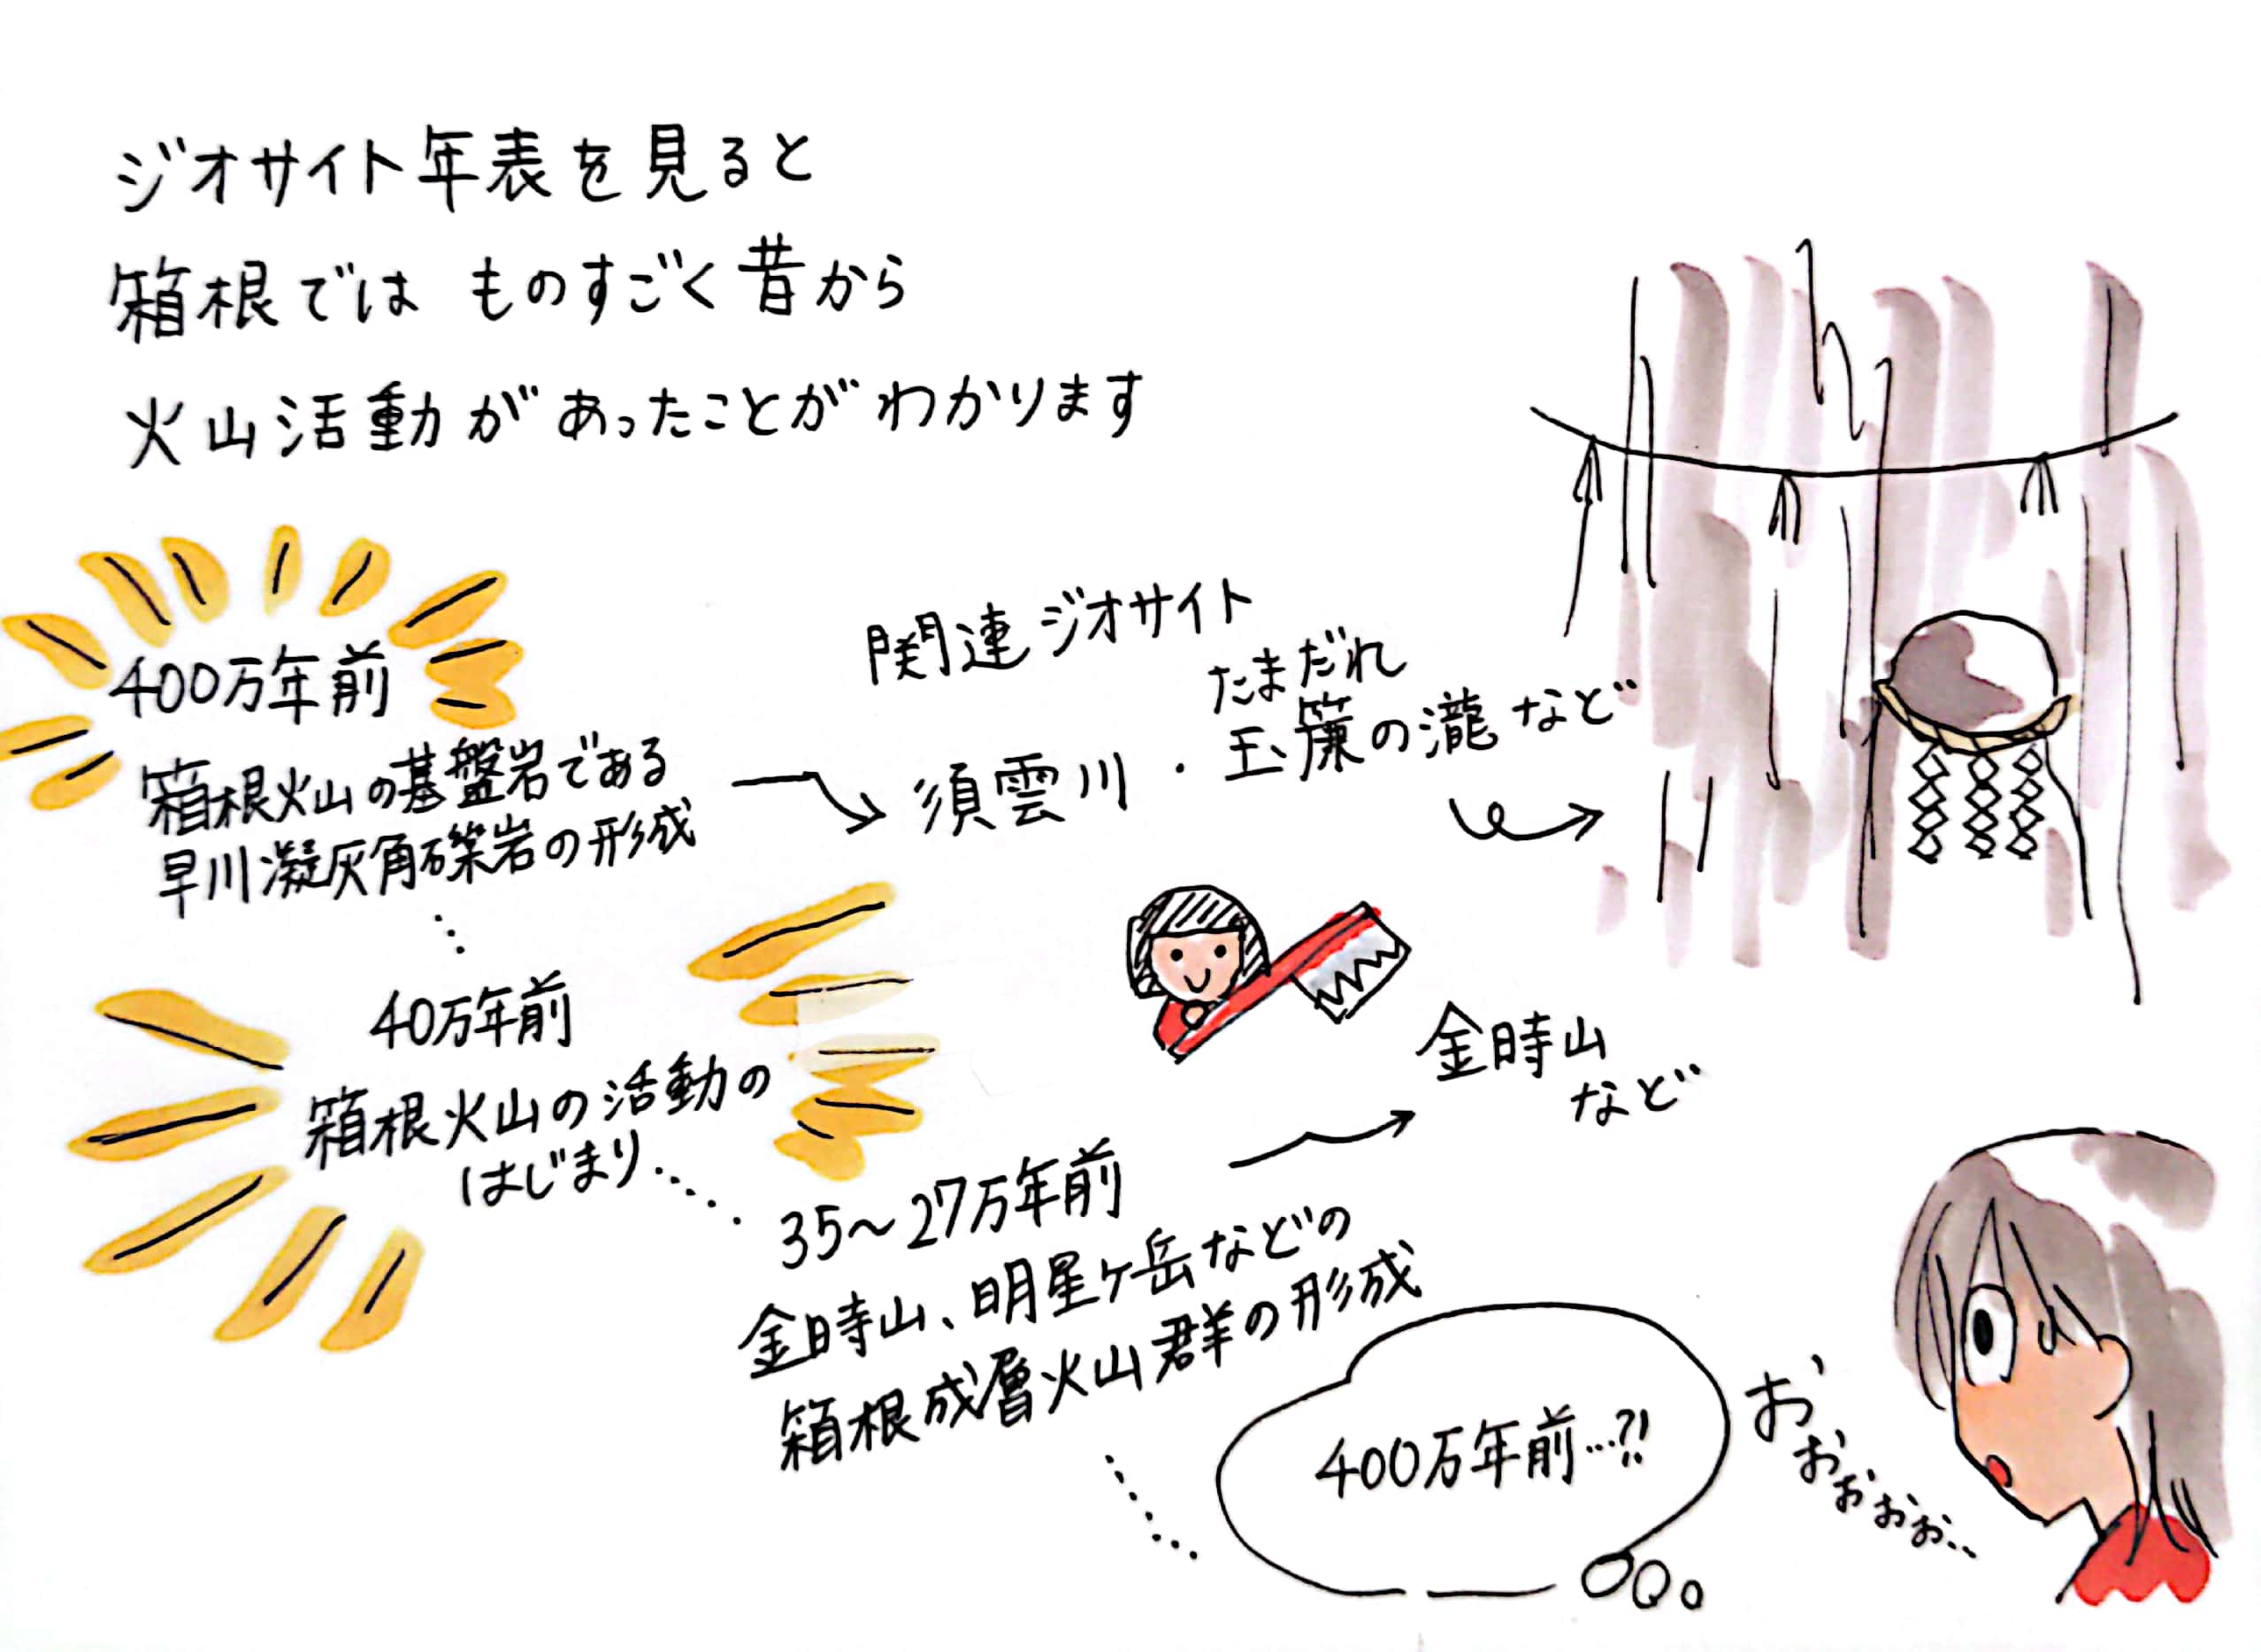 ジオサイト年表を見ると
箱根では ものすごく昔から
火山活動があったことがわかります
400万年前
箱根火山の基盤岩である
早川凝灰角礫岩の形成
関連ジオサイト
たまだれ
須雲川・玉簾の瀧など
40万年前
箱根火山の活動の
はじまり
35〜27万年前
金時山、明星ヶ岳などの
箱根成層火山群の形成
金時山
など
400万年前…⁈
おおおおお…